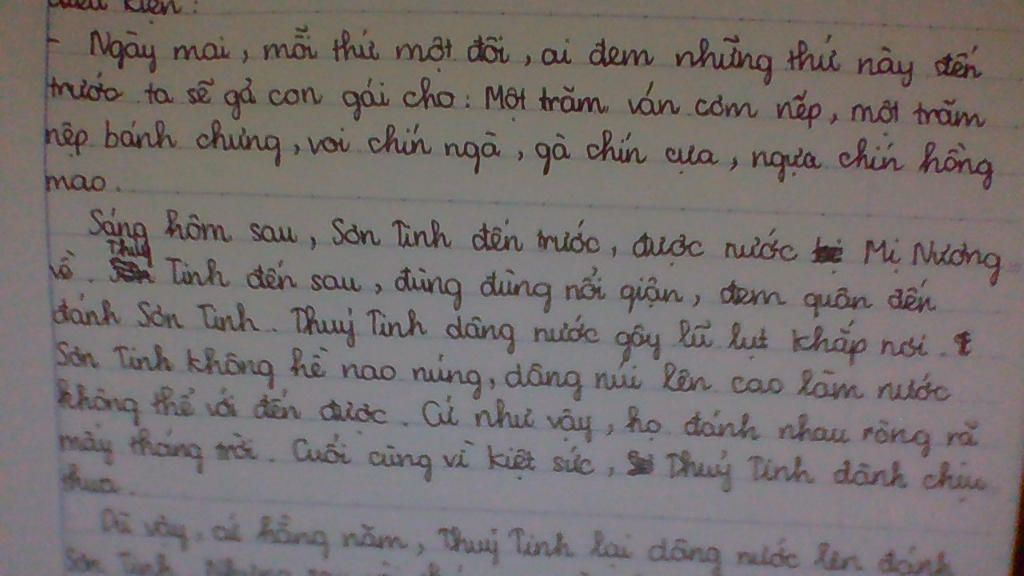 điều kiện:
- Ngày mai, mỗi thứ một đôi, ai đem những thứ này đến
trước ta sẽ gả con gái cho: Một trăm ván cơm nếp, một trăm
nệp bánh chưng, voi chín ngà, gà chín cựa, ngựa chín hồng
mao.
Sáng hôm sau, Sơn Tinh đến trước, được rước Mị Nương
về. Thuỷ Tinh đến sau, đùng đùng nổi giận, đem quân đến
đánh Sơn Tinh. Thuỷ Tinh dâng nước gây lũ lụt khắp nơi.
Sơn Tinh không hề nao núng, dâng núi lên cao làm nước
không thể với đến được. Cứ như vậy, họ đánh nhau ròng rã
mấy tháng trời. Cuối cùng vì kiệt sức, Thuỷ Tinh đành chịu
thua.
Dù vậy, cứ hằng năm, Thuỷ Tinh lại dâng nước lên đánh
Sơn Tinh. Nhưng